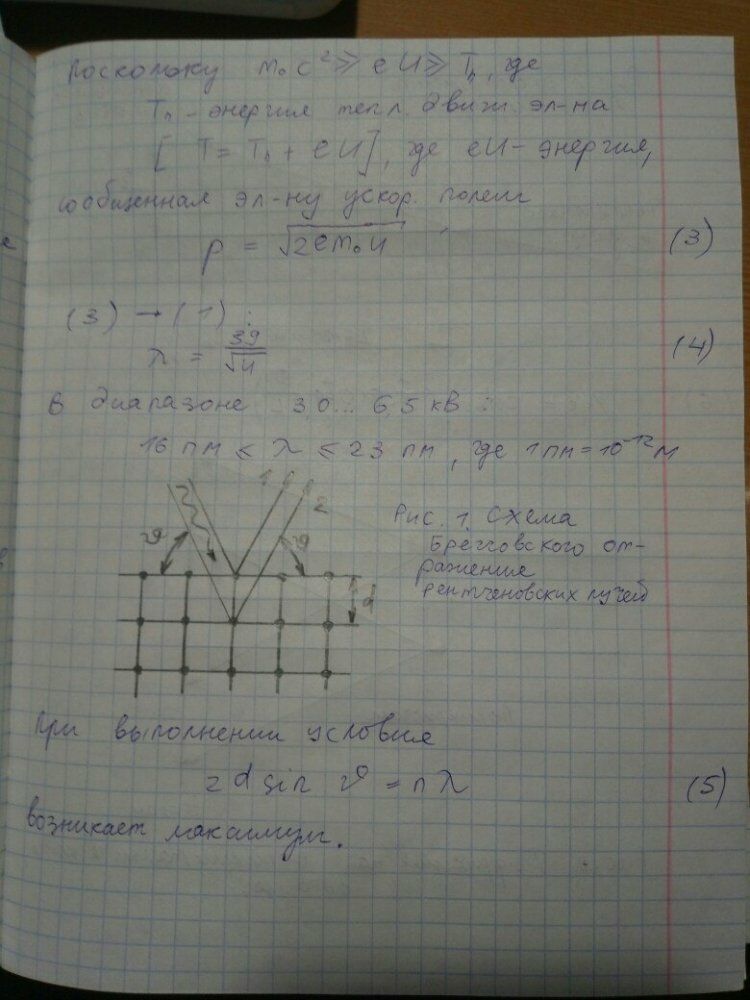 поскольку m₀c² ≫ eU ≫ Tₙ, где
Tₙ - энергия тепл. движ. эл-на
[ T = Tₙ + eU ], где eU - энергия,
сообщенная эл-ну ускор. полем
p = √2em₀U (3)
(3) → (1) :
λ = 39/√U (4)
В диапазоне 3,0... 6,5 кВ :
16 пм ≤ λ ≤ 23 пм, где 1пм = 10⁻¹² м
1
2
ϑ
ϑ
d
Рис. 1. Схема
Брегговского от-
ражение
рентгеновских лучей
При выполнении условия
2d sin ϑ = nλ (5)
возникает максимум.